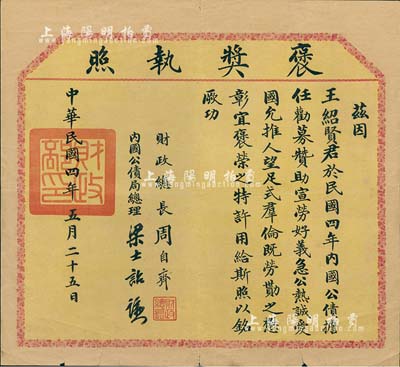 褒獎執照
茲因
王紹賢君於民國四年內國公債擔
任勸募贊助宣勞好義急公熱誠愛
國允推人望足式羣倫既勞勩之遠
彰宜褒榮之特許用給斯照以銘
厥功
財政總長周自齊
內國公債局總理梁士詒
中華民國四年五月二十五日
財政總印
上海陽明拍賣
上海陽明拍賣
上海陽明拍賣